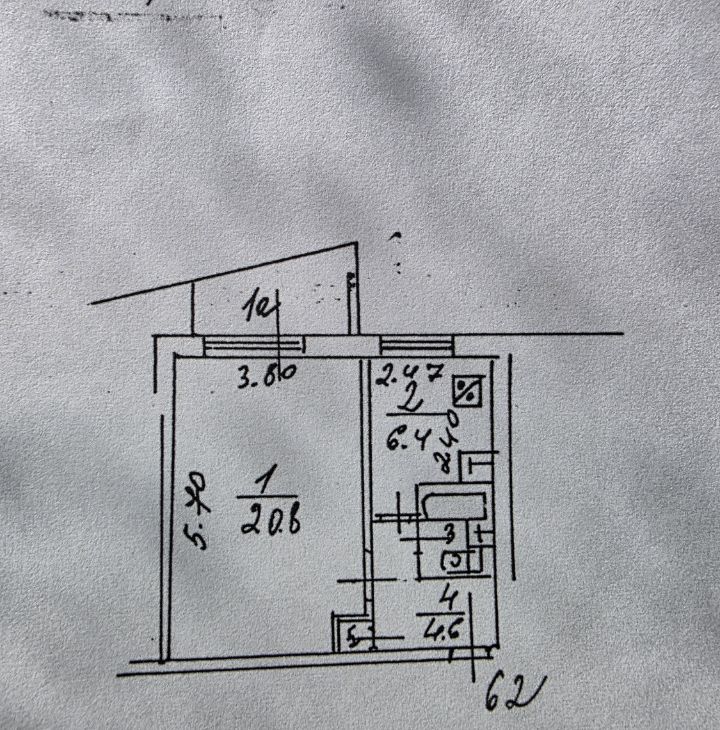 1а
3.80
2.47
2
6.4
2.40
5.70
1
20.8
Т
3
Т
4
4.6
5
62